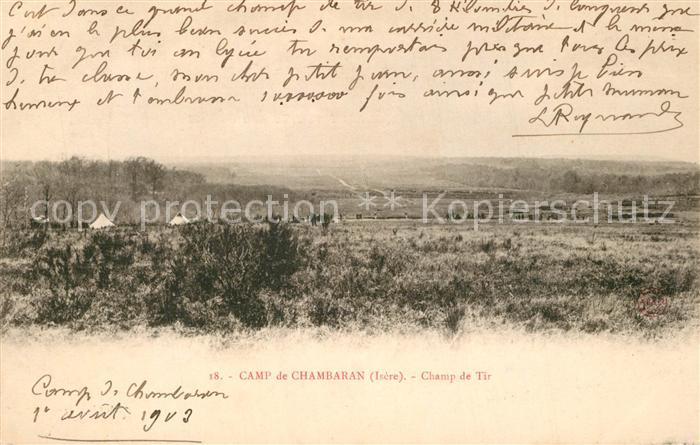 C'est dans ce grand champ de tir de 8 Kilomètres de longueur que
j'ai eu le plus beau succès de ma carrière militaire et le même
jour que toi au lycée tu remportais presque tous les prix
de ta classe, mon cher petit Jean, aussi suis-je bien
heureux et t'embrasse 1000000 fois ainsi que petite maman
copy protection | Kopierschutz
18. - CAMP de CHAMBARAN (Isère). - Champ de Tir
Camp de Chambaran
1er août 1903